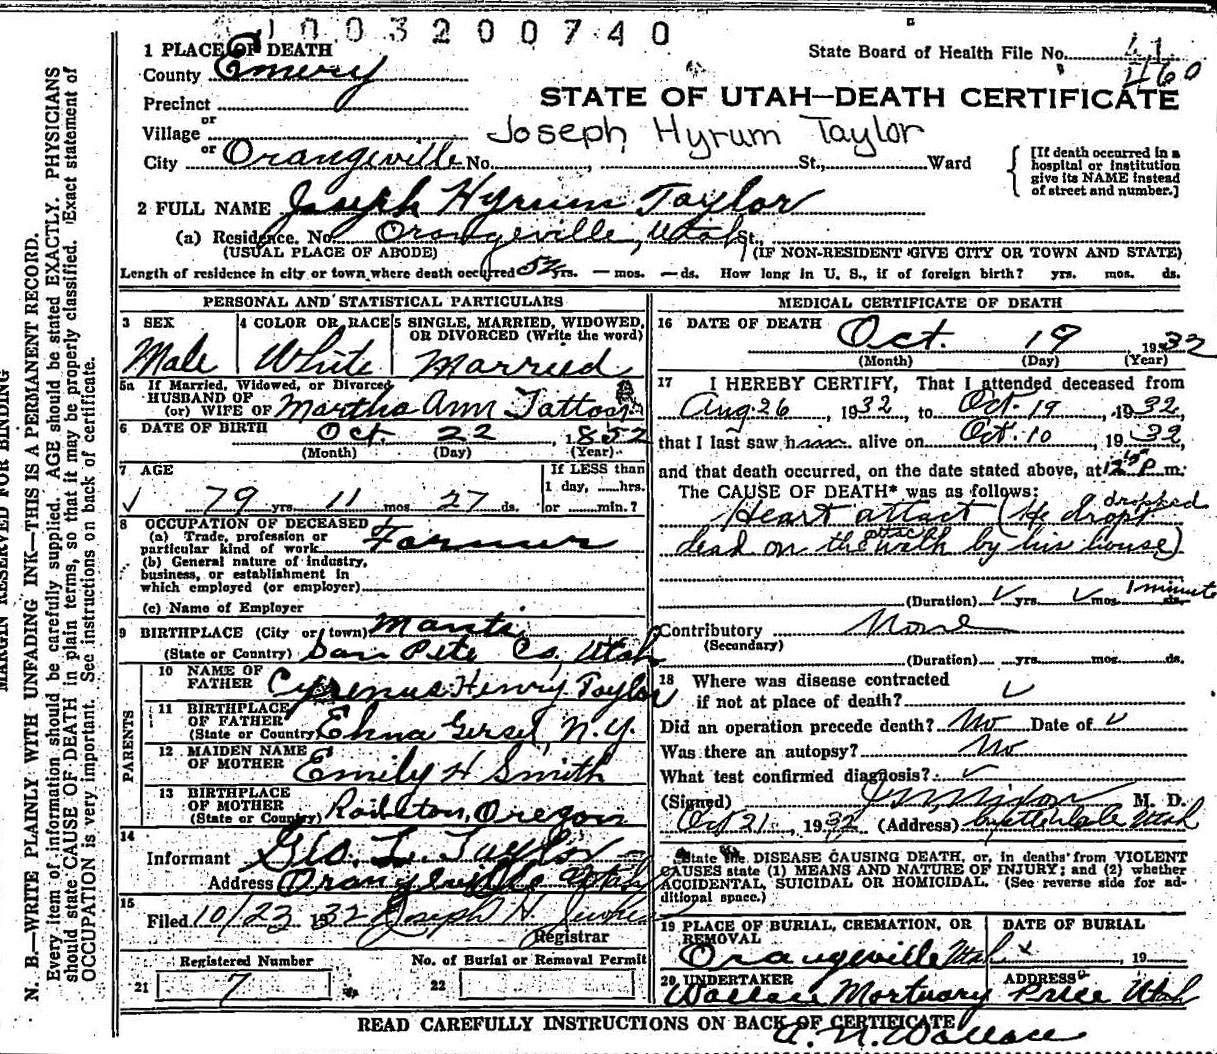 1003200740
1 PLACE OF DEATH
State Board of Health File No. 41
460
County Emery
STATE OF UTAH—DEATH CERTIFICATE
Precinct
or
Village
Joseph Hyrum Taylor
or
City Orangeville No. , St., Ward
[If death occurred in a hospital or institution give its NAME instead of street and number.]
2 FULL NAME Joseph Hyrum Taylor
(a) Residence. No. Orangeville, Utah St.,
(USUAL PLACE OF ABODE) (IF NON-RESIDENT GIVE CITY OR TOWN AND STATE)
Length of residence in city or town where death occurred 52 yrs. — mos. — ds. How long in U. S., if of foreign birth? yrs. mos. ds.
PERSONAL AND STATISTICAL PARTICULARS
3 SEX
Male
4 COLOR OR RACE
White
5 SINGLE, MARRIED, WIDOWED, OR DIVORCED (Write the word)
Married
5a If Married, Widowed, or Divorced
HUSBAND OF
(or) WIFE OF Martha Ann Tatton
6 DATE OF BIRTH Oct. 22, 1852
(Month) (Day) (Year)
7 AGE
79 yrs. 11 mos. 27 ds.
If LESS than
1 day, ......hrs.
or ......min.?
8 OCCUPATION OF DECEASED
(a) Trade, profession or
particular kind of work Farmer
(b) General nature of industry,
business, or establishment in
which employed (or employer)
(c) Name of Employer
9 BIRTHPLACE (City or town) Manti
(State or Country) San Pete Co, Utah
PARENTS
10 NAME OF
FATHER Cyrenus Henry Taylor
11 BIRTHPLACE
OF FATHER
(State or Country) N.Y.
12 MAIDEN NAME
OF MOTHER Emily H Smith
13 BIRTHPLACE
OF MOTHER
(State or Country) Oregon
14
Informant Geo. L. Taylor
Address Orangeville Utah
15
Filed 10/23 1932 Joseph H.
Registrar
Registered Number
21 7
No. of Burial or Removal Permit
22
MEDICAL CERTIFICATE OF DEATH
16 DATE OF DEATH Oct. 19 1932
(Month) (Day) (Year)
17 I HEREBY CERTIFY, That I attended deceased from
Aug 26, 1932, to Oct. 19, 1932,
that I last saw him alive on Oct. 10, 1932,
and that death occurred, on the date stated above, at P.m.
The CAUSE OF DEATH* was as follows:
dropped
Heart attact (He dropt
dead on the walk by his house)
(Duration) yrs. mos. 1 minute ds.
Contributory None
(Secondary)
(Duration) yrs. mos. ds.
18 Where was disease contracted
if not at place of death?
Did an operation precede death? No Date of
Was there an autopsy? No
What test confirmed diagnosis?
(Signed) M. D.
Oct 21, 1932 (Address) Utah
*State the DISEASE CAUSING DEATH, or, in deaths from VIOLENT
CAUSES state (1) MEANS AND NATURE OF INJURY; and (2) whether
ACCIDENTAL, SUICIDAL OR HOMICIDAL. (See reverse side for ad-
ditional space.)
19 PLACE OF BURIAL, CREMATION, OR REMOVAL
Orangeville Utah
DATE OF BURIAL
x , 19
20 UNDERTAKER
Wallace Mortuary
ADDRESS
Price Utah
READ CAREFULLY INSTRUCTIONS ON BACK OF CERTIFICATE
A. N. Wallace
MARGIN RESERVED FOR BINDING
N. B.—WRITE PLAINLY WITH UNFADING INK—THIS IS A PERMANENT RECORD.
Every item of information should be carefully supplied. AGE should be stated EXACTLY. PHYSICIANS
should state CAUSE OF DEATH in plain terms, so that it may be properly classified. Exact statement of
OCCUPATION is very important. See instructions on back of certificate.